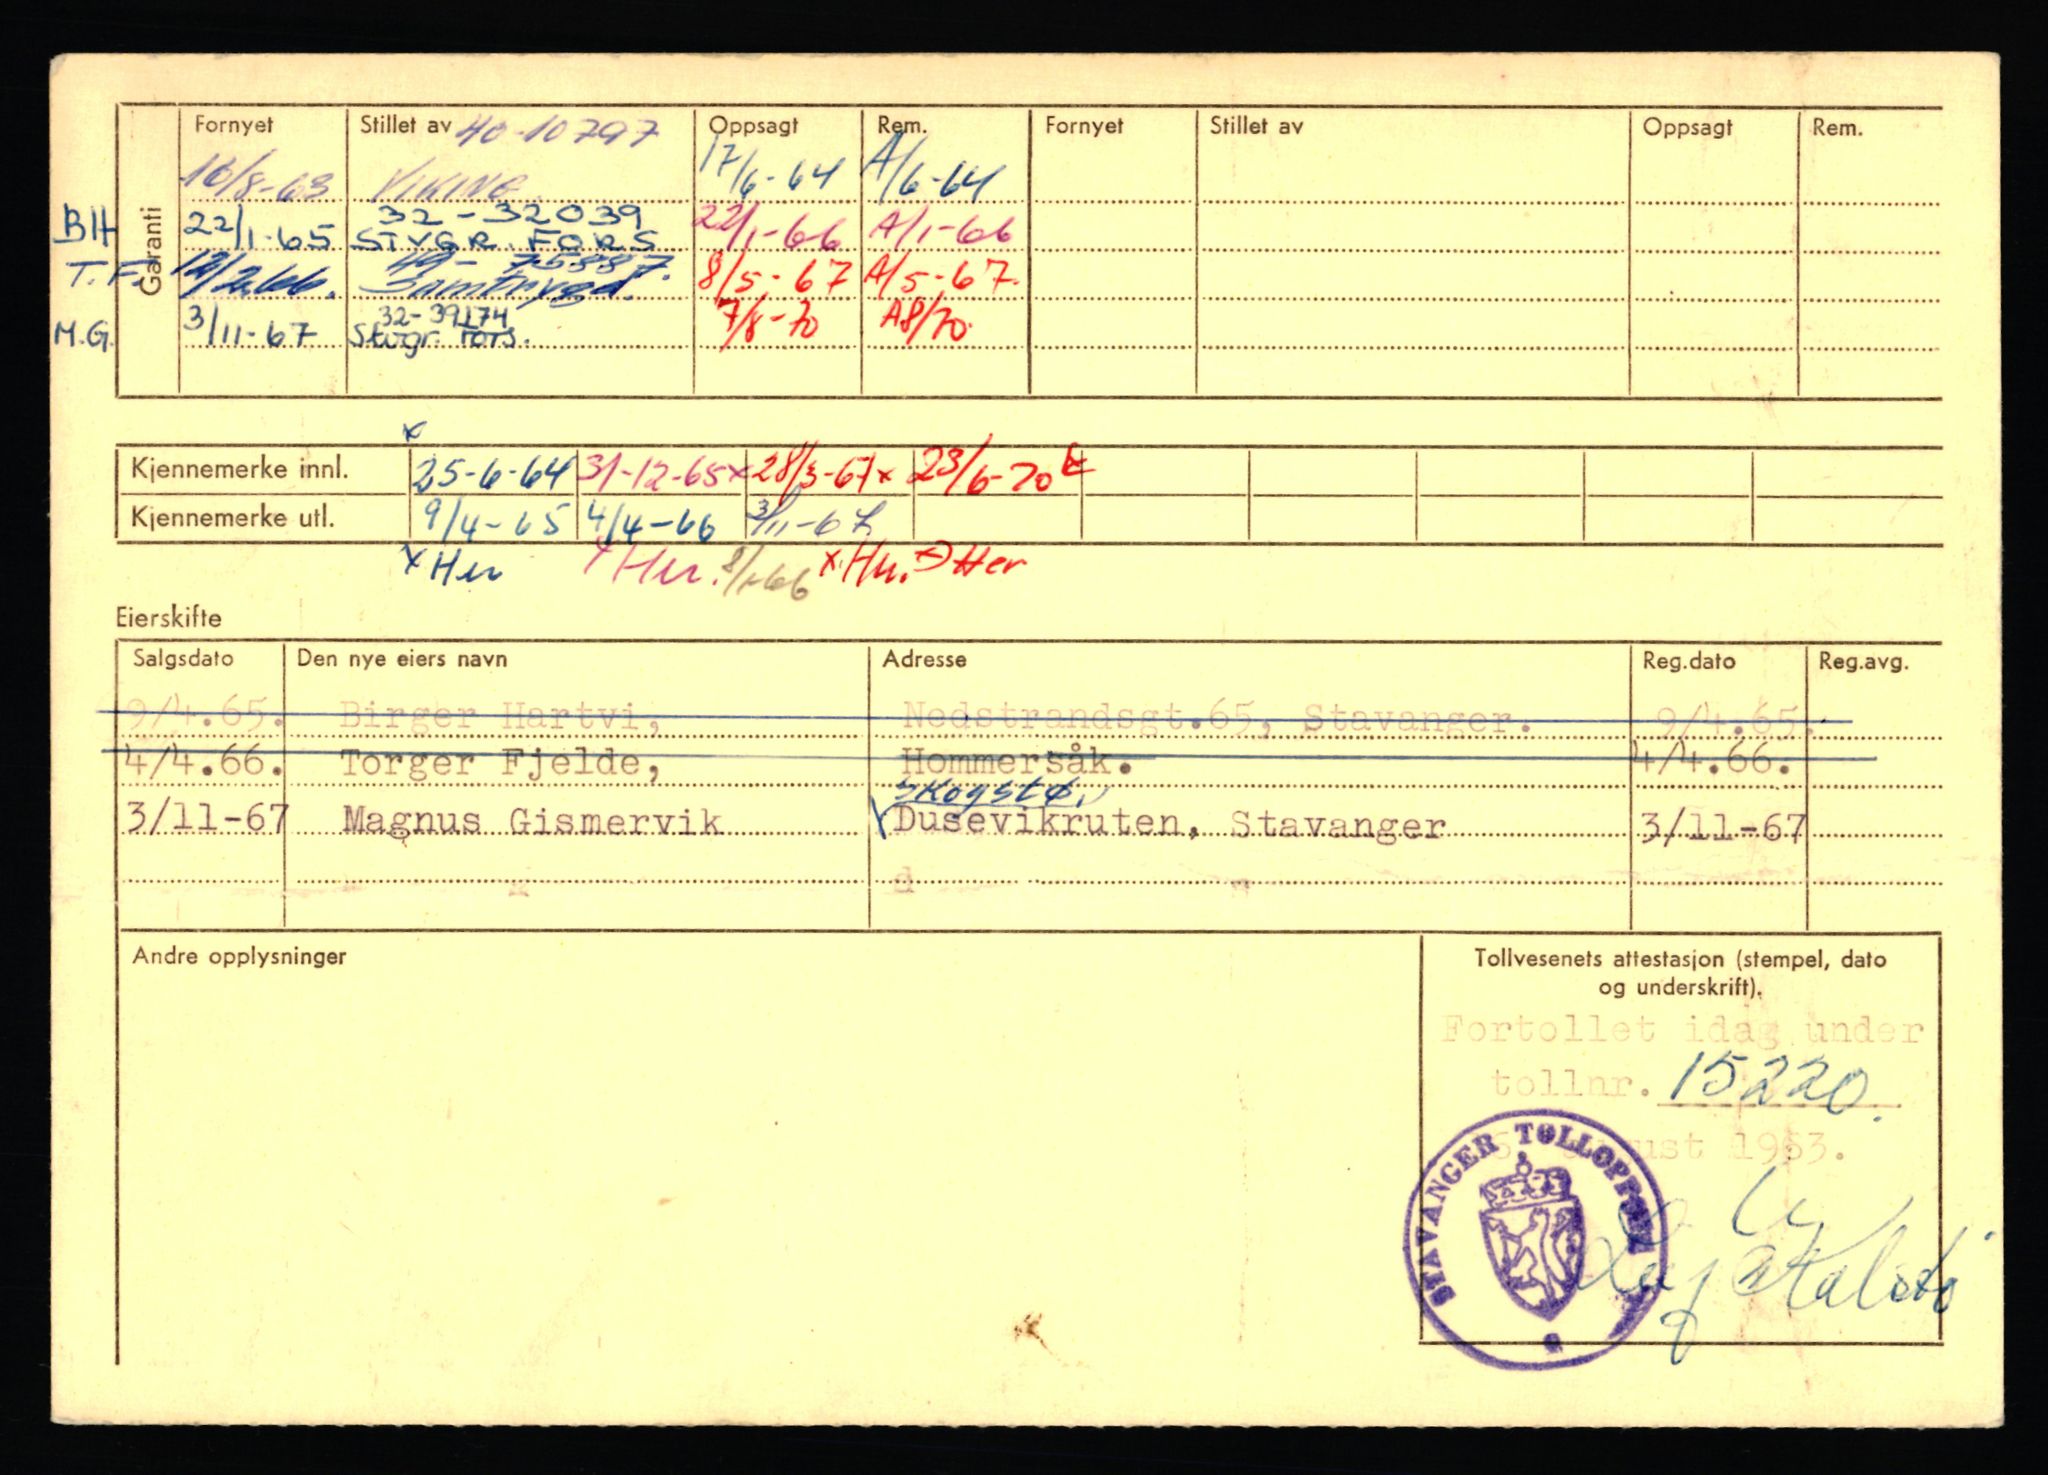 Garanti
Fornyet Stillet av 40-10797 Oppsagt Rem. Fornyet Stillet av Oppsagt Rem.
16/8-63 VIKING 17/6-64 A/6-64
BH 22/1-65 32-32039 STVGR. FORS 22/1-66 A/1-66
T.F. Samtrygd. 8/5-67 A/5-67.
M.G. 3/11-67 32-39174 Stvgr. Fors. 7/8-70 A8/70.
x
Kjennemerke innl. 25-6-64 31-12-65x 28/3-67x 23/6-70
Kjennemerke utl. 9/4-65 4/4-66 3/11-67
8/1-66
Eierskifte
Salgsdato Den nye eiers navn Adresse Reg.dato Reg.avg.
9/4.65. Birger Hartvi, Nedstrandsgt.65, Stavanger. 9/4.65.
4/4.66. Torger Fjelde, Hommersåk. 4/4.66.
Skogstø,
3/11-67 Magnus Gismervik Dusevikruten, Stavanger 3/11-67
Andre opplysninger
Tollvesenets attestasjon (stempel, dato
og underskrift).
Fortollet idag under
tollnr. 15220.
august 1963.
STAVANGER TOLLOPPSYN